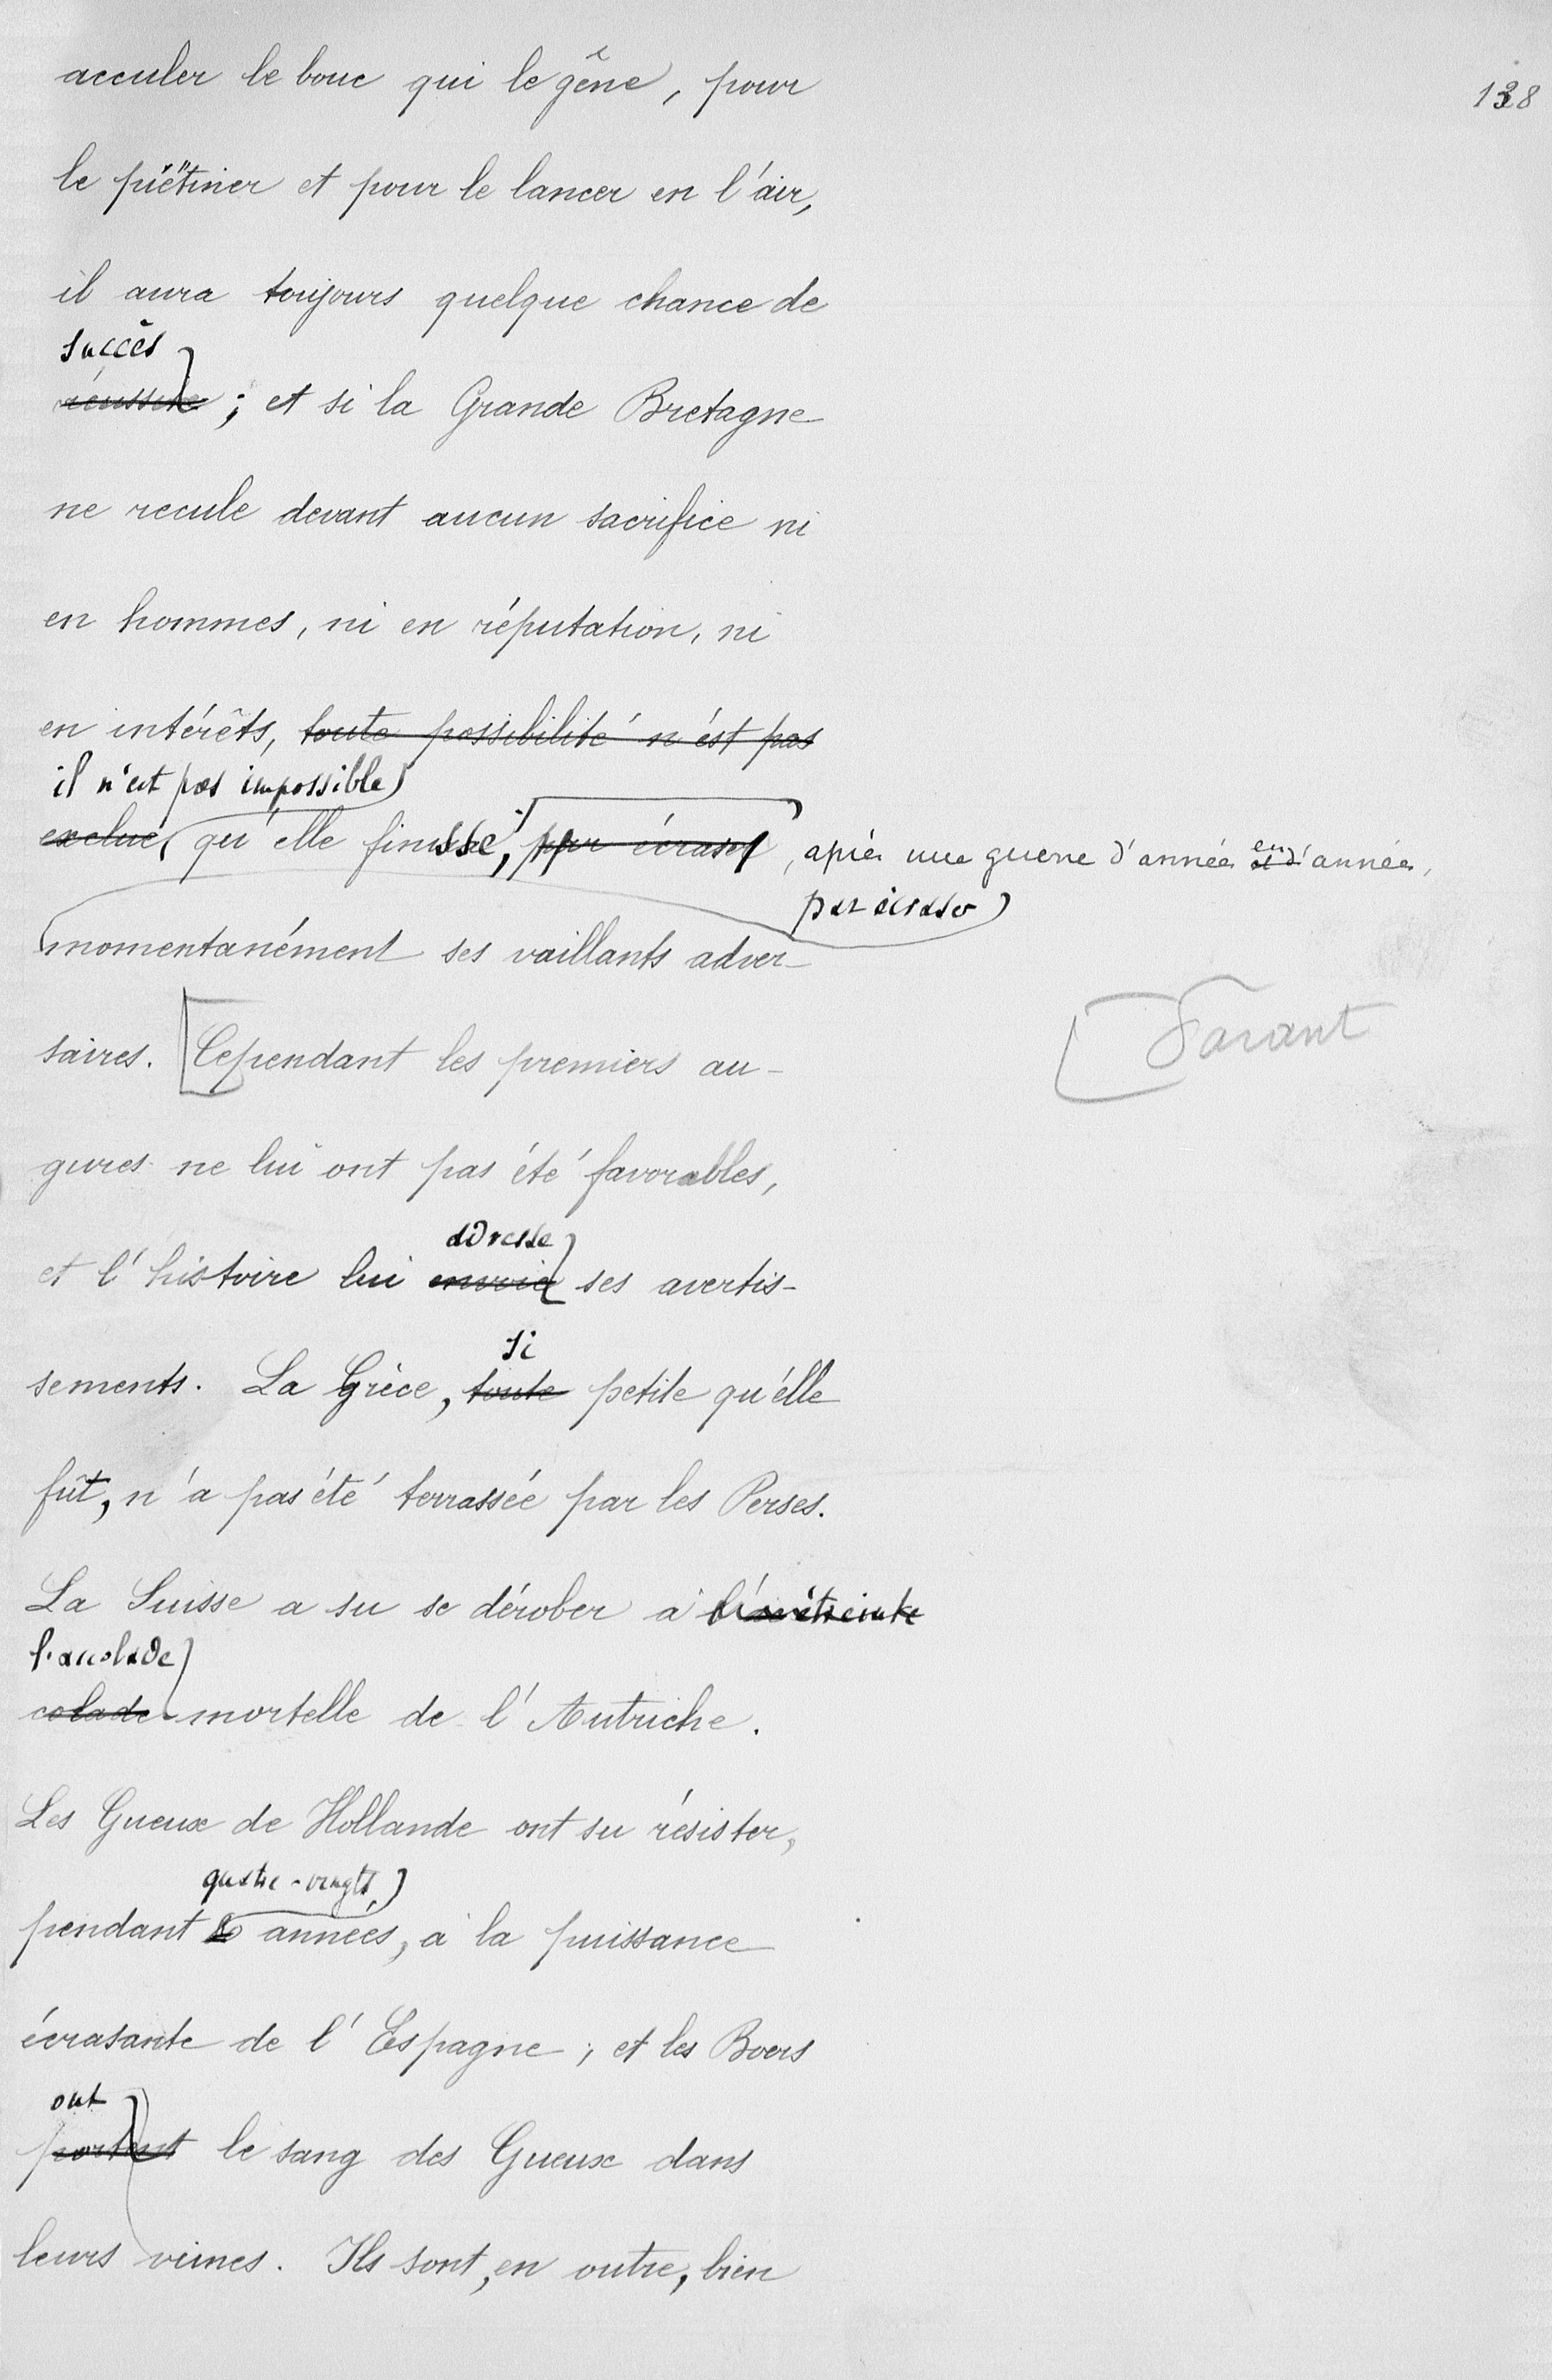 138
acculer le bouc qui le gêne, pour
le piétiner et pour le lancer en l'air,
il aura toujours quelque chance de
succès
réussite ; et si la Grande Bretagne
ne recule devant aucun sacrifice ni
en hommes, ni en réputation, ni
en intérêts, toute possibilité n'est pas
il n'est pas impossible
exclue, qu'elle finisse, par écraser, après une guerre d'années en d'années,
par écraser
momentanément ses vaillants adver-
saires. Cependant les premiers au-
gures ne lui ont pas été favorables,
adresse
et l'histoire lui envoie ses avertis-
si
sements. La Grèce, toute petite qu'elle
fût, n'a pas été terrassée par les Perses.
La Suisse a su se dérober à l'étreinte
l'accolade
colade mortelle de l'Autriche.
Les Gueux de Hollande ont su résister,
quatre-vingts
pendant 80 années, à la puissance
écrasante de l'Espagne ; et les Boers
ont
portent le sang des Gueux dans
leurs veines. Ils sont, en outre, bien